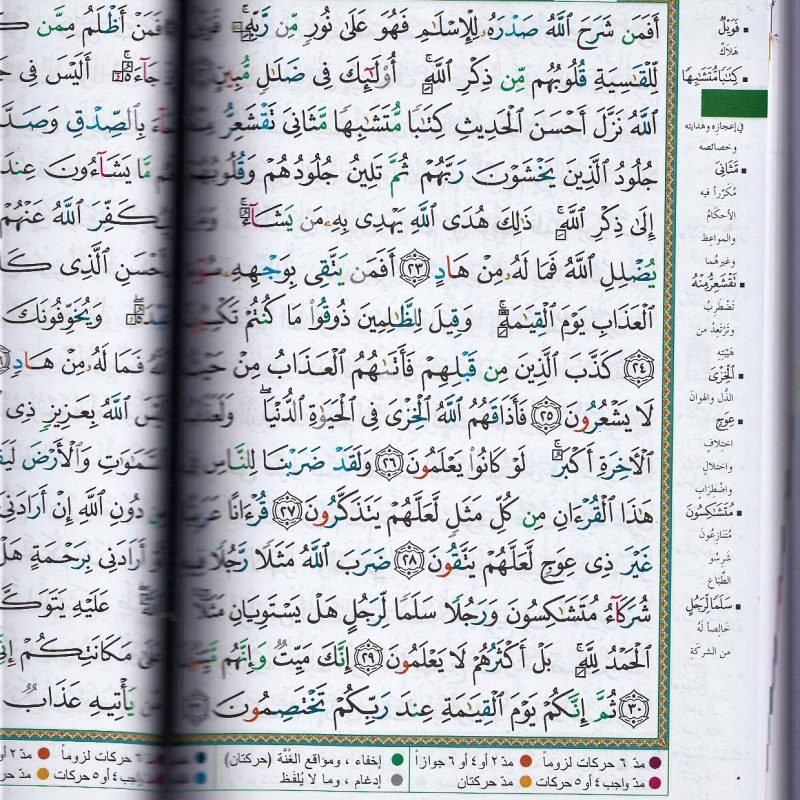 أَفَمَن شَرَحَ ٱللَّهُ صَدْرَهُۥ لِلْإِسْلَٰمِ فَهُوَ عَلَىٰ نُورٍ مِّن رَّبِّهِۦۚ فَوَيْلٌ
لِّلْقَٰسِيَةِ قُلُوبُهُم مِّن ذِكْرِ ٱللَّهِۚ أُو۟لَٰٓئِكَ فِى ضَلَٰلٍ مُّبِينٍ
ٱللَّهُ نَزَّلَ أَحْسَنَ ٱلْحَدِيثِ كِتَٰبًا مُّتَشَٰبِهًا مَّثَانِىَ تَقْشَعِرُّ مِنْهُ
جُلُودُ ٱلَّذِينَ يَخْشَوْنَ رَبَّهُمْ ثُمَّ تَلِينُ جُلُودُهُمْ وَقُلُوبُهُمْ
إِلَىٰ ذِكْرِ ٱللَّهِۚ ذَٰلِكَ هُدَى ٱللَّهِ يَهْدِى بِهِۦ مَن يَشَآءُۚ وَمَن
يُضْلِلِ ٱللَّهُ فَمَا لَهُۥ مِنْ هَادٍ ٢٣ أَفَمَن يَتَّقِى بِوَجْهِهِۦ سُوٓءَ
ٱلْعَذَابِ يَوْمَ ٱلْقِيَٰمَةِۚ وَقِيلَ لِلظَّٰلِمِينَ ذُوقُوا۟ مَا كُنتُمْ تَكْسِبُونَ
٢٤ كَذَّبَ ٱلَّذِينَ مِن قَبْلِهِمْ فَأَتَىٰهُمُ ٱلْعَذَابُ مِنْ حَيْثُ
لَا يَشْعُرُونَ ٢٥ فَأَذَاقَهُمُ ٱللَّهُ ٱلْخِزْىَ فِى ٱلْحَيَوٰةِ ٱلدُّنْيَاۖ وَلَعَذَابُ
ٱلْءَاخِرَةِ أَكْبَرُۚ لَوْ كَانُوا۟ يَعْلَمُونَ ٢٦ وَلَقَدْ ضَرَبْنَا لِلنَّاسِ فِى
هَٰذَا ٱلْقُرْءَانِ مِن كُلِّ مَثَلٍ لَّعَلَّهُمْ يَتَذَكَّرُونَ ٢٧ قُرْءَانًا عَرَبِيًّا
غَيْرَ ذِى عِوَجٍ لَّعَلَّهُمْ يَتَّقُونَ ٢٨ ضَرَبَ ٱللَّهُ مَثَلًا رَّجُلًا فِيهِ
شُرَكَآءُ مُتَشَٰكِسُونَ وَرَجُلًا سَلَمًا لِّرَجُلٍ هَلْ يَسْتَوِيَانِ مَثَلًاۚ
ٱلْحَمْدُ لِلَّهِۚ بَلْ أَكْثَرُهُمْ لَا يَعْلَمُونَ ٢٩ إِنَّكَ مَيِّتٌ وَإِنَّهُم مَّيِّتُونَ
٣٠ ثُمَّ إِنَّكُمْ يَوْمَ ٱلْقِيَٰمَةِ عِندَ رَبِّكُمْ تَخْتَصِمُونَ
فَوَيْلٌ
هَلَاكٌ
كِتَٰبًا مُّتَشَٰبِهًا
في إعجازه وهدايته
وخصائصه
مَّثَانِىَ
مُكَرَّراً فيه
الأحكامُ
والمواعظُ
وغيرهما
تَقْشَعِرُّ مِنْهُ
تَضْطَرِبُ
وتَرْتعِدُ من
هَيْبَتِهِ
ٱلْخِزْىَ
الذُّلَّ والهوانَ
عِوَجٍ
اختلافٍ
واختلالٍ
واضْطرابٍ
مُتَشَٰكِسُونَ
مُتَنازِعُونَ
شَرِسُو
الطِّباعِ
سَلَمًا لِّرَجُلٍ
خالِصاً لَهُ
من الشركَةِ
فَمَنْ أَظْلَمُ مِمَّن
جَآءَهُۥٓۚ أَلَيْسَ فِى
بِٱلصِّدْقِ وَصَدَّقَ
مَّا يَشَآءُونَ عِندَ
لِيُكَفِّرَ ٱللَّهُ عَنْهُمْ
بِأَحْسَنِ ٱلَّذِى
عَبْدَهُۥۖ وَيُخَوِّفُونَكَ
فَمَا لَهُۥ مِنْ هَادٍ
أَلَيْسَ ٱللَّهُ بِعَزِيزٍ ذِى
ٱلسَّمَٰوَٰتِ وَٱلْأَرْضَ
مِن دُونِ ٱللَّهِ إِنْ أَرَادَنِىَ
أَوْ أَرَادَنِى بِرَحْمَةٍ هَلْ
عَلَيْهِ يَتَوَكَّلُ
عَلَىٰ مَكَانَتِكُمْ إِنِّى
مَن يَأْتِيهِ عَذَابٌ
مدّ ٦ حركات لزوماً مدّ ٢ أو ٤ أو ٦ جوازاً إخفاء ، ومواقع الغُنَّة (حركتان)
مدّ واجب ٤ أو ٥ حركات مدّ حركتان إدغام ، وما لا يُلفَظ
مدّ ٦ حركات لزوماً مدّ ٢ أو
مدّ واجب ٤ أو ٥ حركات مدّ